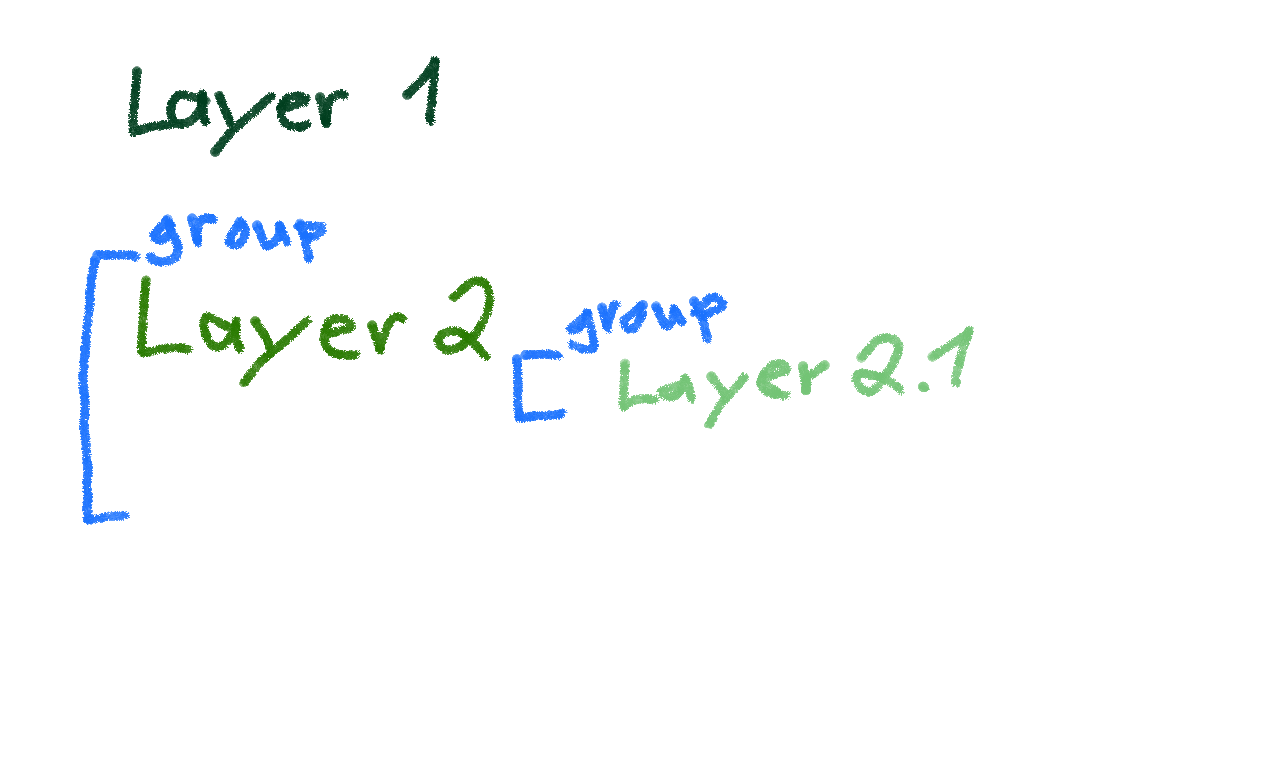 Layer 1
group
Layer 2
group
Layer 2.1